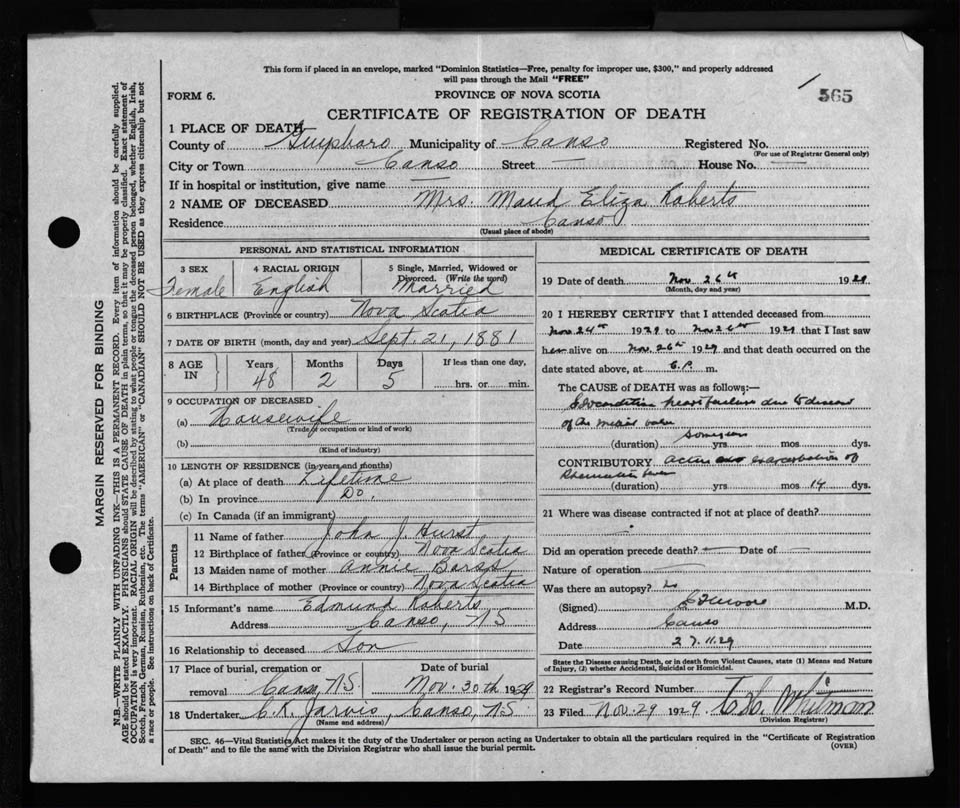 This form if placed in an envelope, marked "Dominion Statistics—Free, penalty for improper use, $300," and properly addressed
will pass through the Mail "FREE"
FORM 6.
PROVINCE OF NOVA SCOTIA
565
CERTIFICATE OF REGISTRATION OF DEATH
1 PLACE OF DEATH
County of Guysboro Municipality of Canso Registered No.
(For use of Registrar General only)
City or Town Canso Street — House No. —
If in hospital or institution, give name —
2 NAME OF DECEASED Mrs. Maud Eliza Roberts
Residence Canso
(Usual place of abode)
PERSONAL AND STATISTICAL INFORMATION
3 SEX 4 RACIAL ORIGIN 5 Single, Married, Widowed or
Divorced. (Write the word)
Female English Married
6 BIRTHPLACE (Province or country) Nova Scotia
7 DATE OF BIRTH (month, day and year) Sept. 21, 1881
8 AGE IN Years Months Days If less than one day,
48 2 5 hrs. or min.
9 OCCUPATION OF DECEASED
(a) Housewife
(Trade or occupation or kind of work)
(b)
(Kind of industry)
10 LENGTH OF RESIDENCE (in years and months)
(a) At place of death Lifetime
(b) In province Do.
(c) In Canada (if an immigrant)
Parents
11 Name of father John J. Hurst
12 Birthplace of father (Province or country) Nova Scotia
13 Maiden name of mother Annie Barss
14 Birthplace of mother (Province or country) Nova Scotia
15 Informant's name Edmund Roberts
Address Canso, NS
16 Relationship to deceased Son
17 Place of burial, cremation or Date of burial
removal Canso, N.S. Nov. 30th 1929
18 Undertaker C.K. Jarvis, Canso, NS
(Name and address)
MEDICAL CERTIFICATE OF DEATH
19 Date of death Nov. 26th 1929
(Month, day and year)
20 I HEREBY CERTIFY that I attended deceased from
Nov 24th 1929 to Nov 26th 1929 that I last saw
her alive on Nov. 26th 1929 and that death occurred on the
date stated above, at P. m.
The CAUSE OF DEATH was as follows:—
heart failure due to disease
of the mitral valve
(duration) some years yrs mos dys.
CONTRIBUTORY acute exacerbation of
Rheumatic fever
(duration) yrs mos 14 dys.
21 Where was disease contracted if not at place of death?
Did an operation precede death? — Date of —
Nature of operation —
Was there an autopsy? no
(Signed) Moore M.D.
Address Canso
Date 27.11.29
State the Disease causing Death, or in death from Violent Causes, state (1) Means and Nature
of Injury, (2) whether Accidental, Suicidal or Homicidal.
22 Registrar's Record Number
23 Filed Nov. 29 1929 Whitman
(Division Registrar)
SEC. 46—Vital Statistics Act makes it the duty of the Undertaker or person acting as Undertaker to obtain all the particulars required in the "Certificate of Registration
of Death" and to file the same with the Division Registrar who shall issue the burial permit.
(OVER)
MARGIN RESERVED FOR BINDING
N.B.—WRITE PLAINLY WITH UNFADING INK—THIS IS A PERMANENT RECORD. Every item of information should be carefully supplied.
AGE should be stated EXACTLY. PHYSICIANS should STATE CAUSE OF DEATH in plain terms, so that it may be properly classified. Exact statement of
OCCUPATION is very important. RACIAL ORIGIN will be described by stating to what people or tongue the deceased person belonged, whether English, Irish,
Scotch, French, German, Russian, Ruthenian, etc. The terms "AMERICAN" or "CANADIAN" SHOULD NOT BE USED as they express citizenship but not
a race or people. See instructions on back of Certificate.